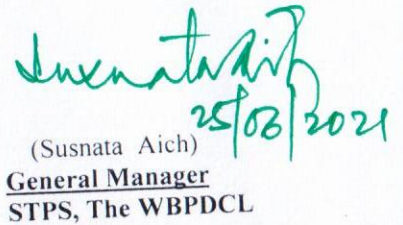 Susnata Aich
25/06/2021
(Susnata Aich)
General Manager
STPS, The WBPDCL